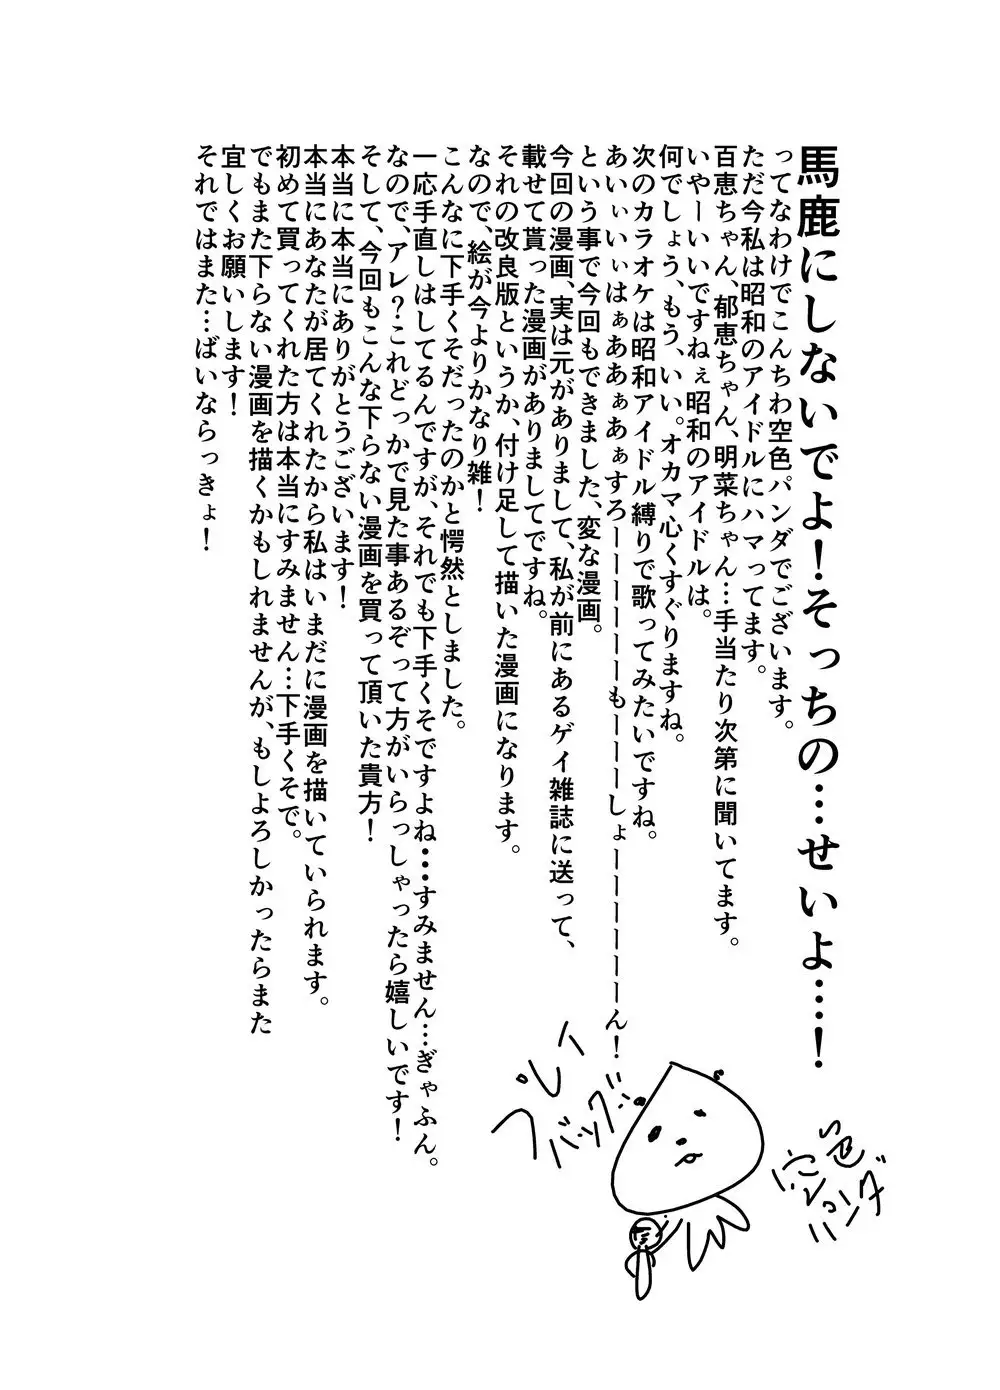 馬鹿にしないでよ！そっちの…せいよ…！
ってなわけでこんちわ空色パンダでございます。
ただ今私は昭和のアイドルにハマってます。
百恵ちゃん、郁恵ちゃん、明菜ちゃん…手当たり次第に聞いてます。
いやーいいですねぇ昭和のアイドルは。
何でしょう、もう、いい。オカマ心くすぐりますね。
次のカラオケは昭和アイドル縛りで歌ってみたいですね。
あいぃいぃはぁああぁあぁすろーーーーーーもーーーしょーーーーーーん！
という事で今回もできました、変な漫画。
今回の漫画、実は元がありまして、私が前にあるゲイ雑誌に送って、
載せて貰った漫画がありましてですね。
それの改良版というか、付け足して描いた漫画になります。
なので、絵が今よりかなり雑！
こんなに下手くそだったのかと愕然としました。
一応手直しはしてるんですが、それでも下手くそですよね・・・すみません…ぎゃふん。
なので、アレ？これどっかで見た事あるぞって方がいらっしゃったら嬉しいです！
そして、今回もこんな下らない漫画を買って頂いた貴方！
本当に本当にありがとうございます！
本当にあなたが居てくれたから私はいまだに漫画を描いていられます。
初めて買ってくれた方は本当にすみません…下手くそで。
でもまた下らない漫画を描くかもしれませんが、もしよろしかったらまた
宜しくお願いします！
それではまた…ばいならっきょ！
プレイ
バック！！
空色
パンダ